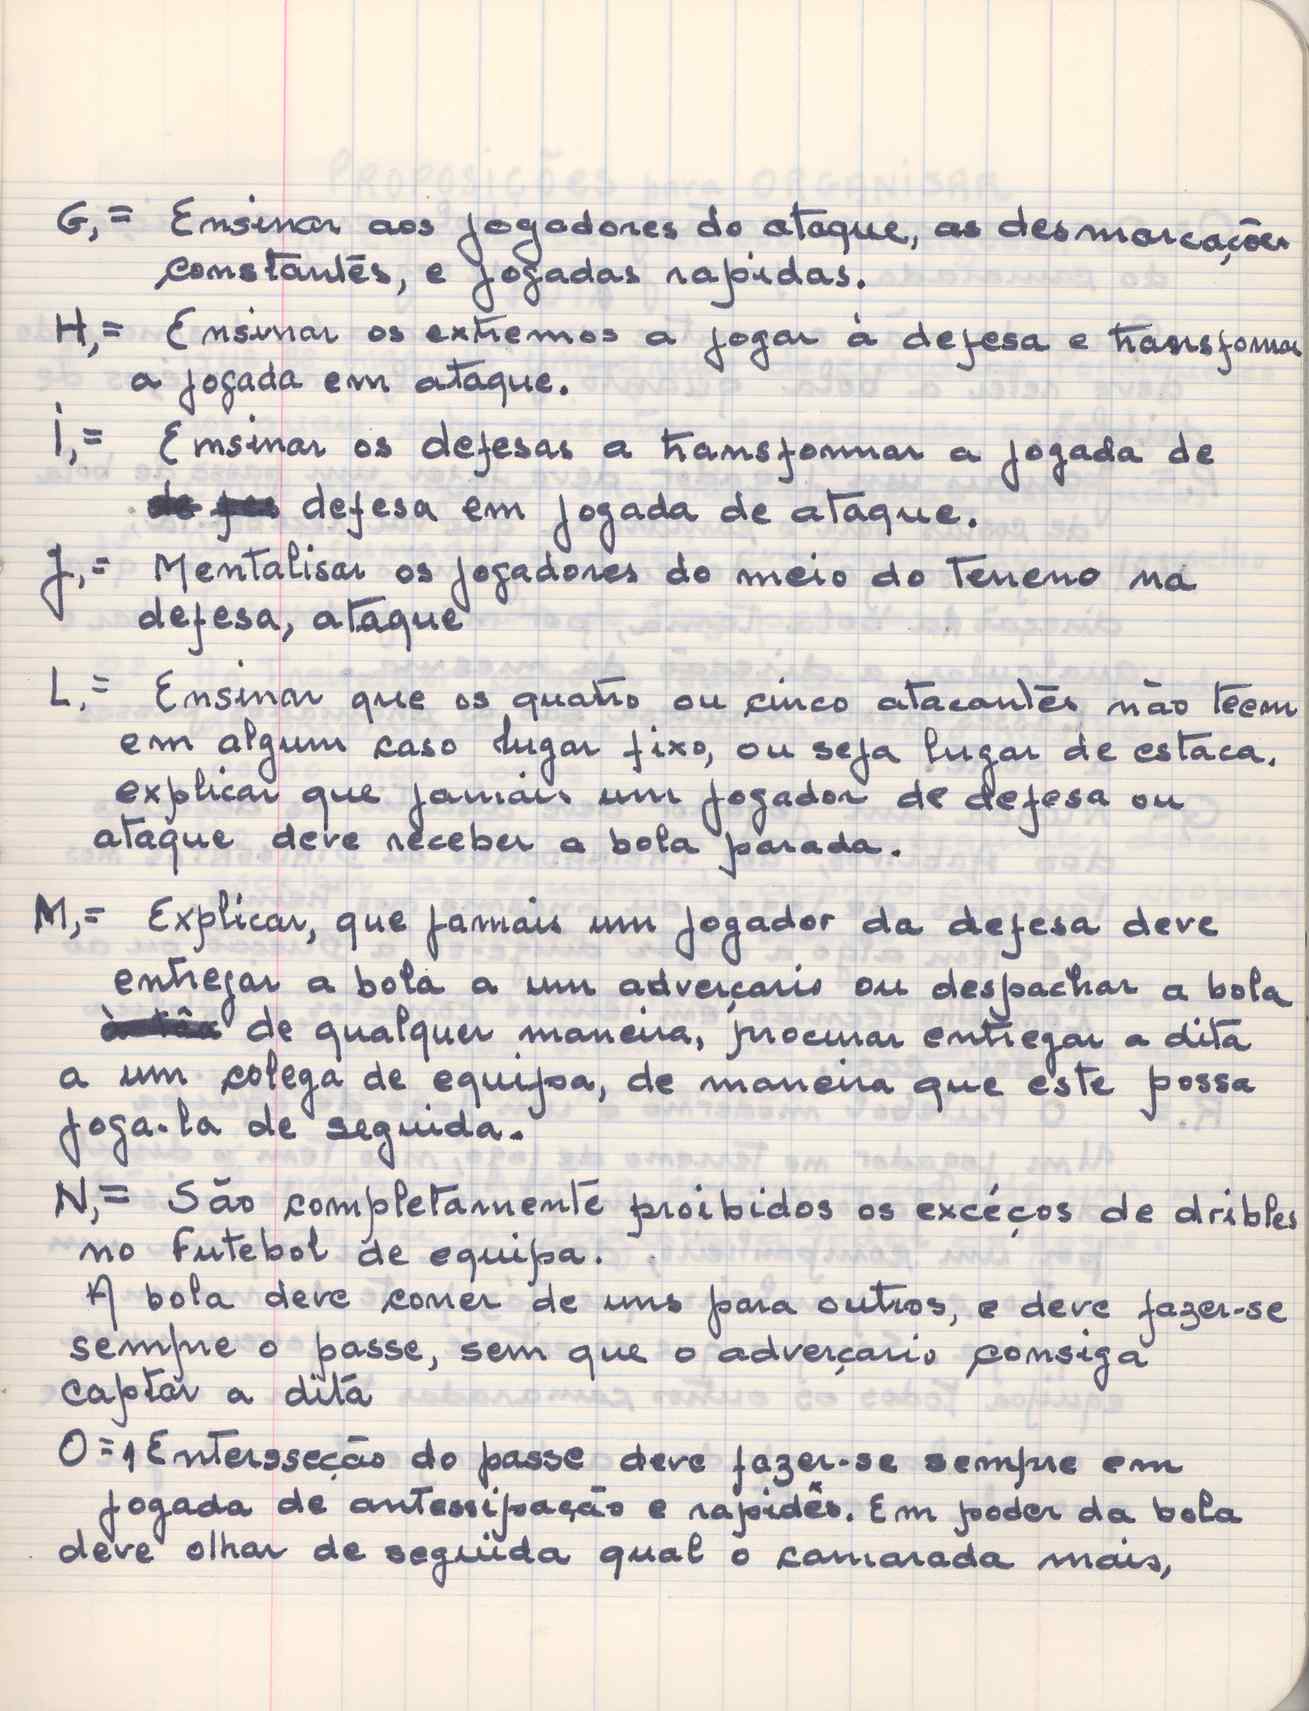 G,= Ensinar aos jogadores do ataque, as desmarcações
constantes, e jogadas rapidas.
H,= Ensinar os extremos a jogar à defesa e transformar
a jogada em ataque.
I,= Emsinar os defesas a transformar a jogada de
defesa em jogada de ataque.
J,= Mentalisar os jogadores do meio do terreno na
defesa, ataque
L,= Ensinar que os quatro ou cinco atacantes não teem
em algum caso lugar fixo, ou seja lugar de estaca.
explicar que jamais um jogador de defesa ou
ataque deve receber a bola parada.
M,= Explicar, que jamais um jogador da defesa deve
entregar a bola a um adverçario ou despachar a bola
de qualquer maneira, procurar entregar a dita
a um colega de equipa, de maneira que este possa
joga-la de seguida.
N,= São completamente proibidos os excéços de dribles
no Futebol de equipa.
A bola deve correr de uns para outros, e deve fazer-se
sempre o passe, sem que o adverçario consiga
captar a dita
O=1 Entersseção do passe deve fazer-se sempre em
jogada de antessipação e rapidês. Em poder da bola
deve olhar de seguida qual o camarada mais,